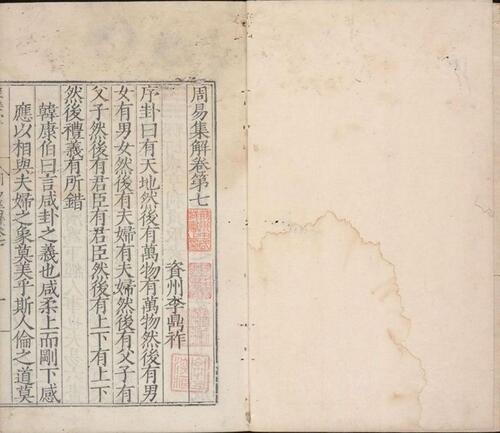 周易集解卷第七
資州李鼎祚
序卦曰有天地然後有萬物有萬物然後有男
女有男女然後有夫婦有夫婦然後有父子有
父子然後有君臣有君臣然後有上下有上下
然後禮義有所錯
韓康伯曰言咸卦之義也咸柔上而剛下感
應以相與夫婦之象莫美乎斯人倫之道莫